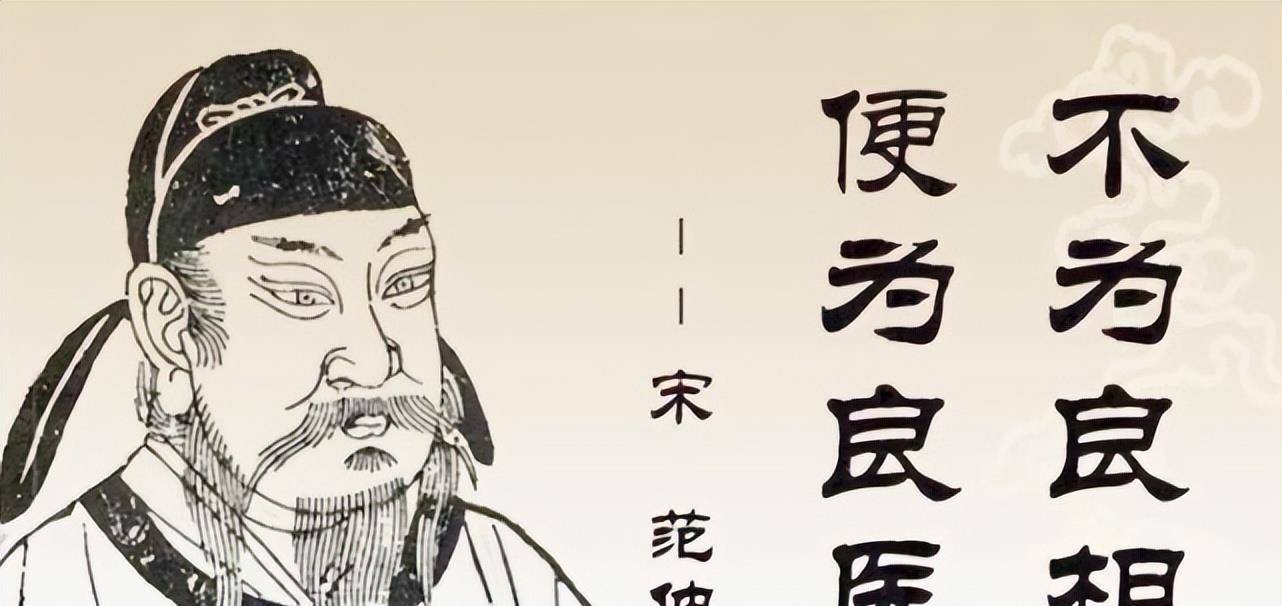 不为良相
便为良医
——宋 范仲